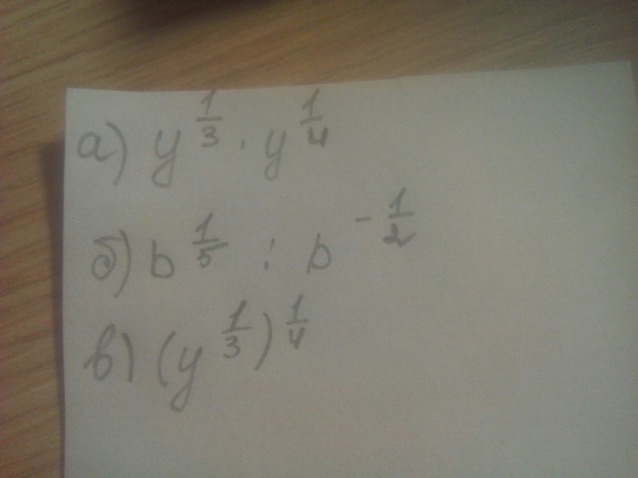 а) y^{\frac{1}{3}} · y^{\frac{1}{4}}
б) b^{\frac{1}{5}} : b^{-\frac{1}{2}}
в) (y^{\frac{1}{3}})^{\frac{1}{4}}